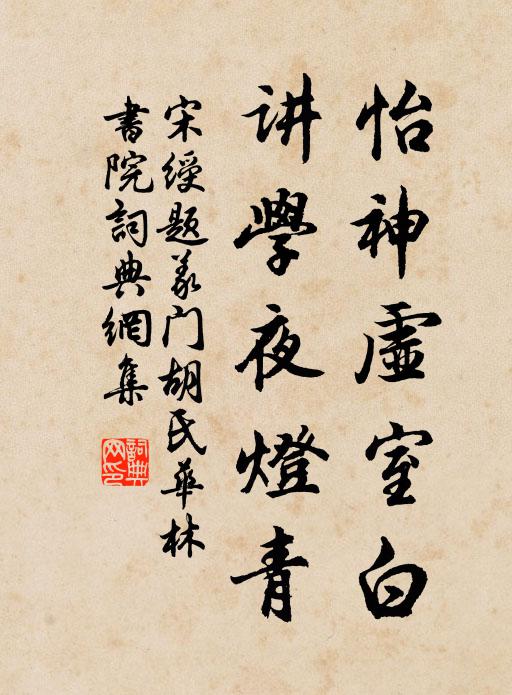 怡神虛室白
讲學夜燈青
宋綬题义门胡氏華林
書院詞典網集
詞典网印